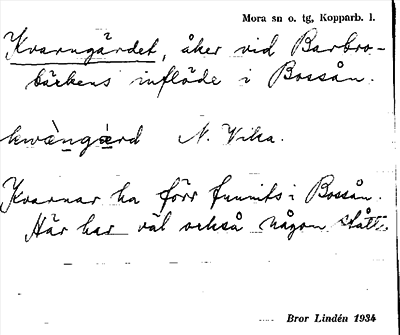 Mora sn o. tg, Kopparb. l.
Kvarngärdet, åker vid Barbro-
bäckens inflöde i Bossån.
N. Vika.
Kvarnar ha förr funnits i Bossån.
Här har väl också någon stått.
Bror Lindén 1934